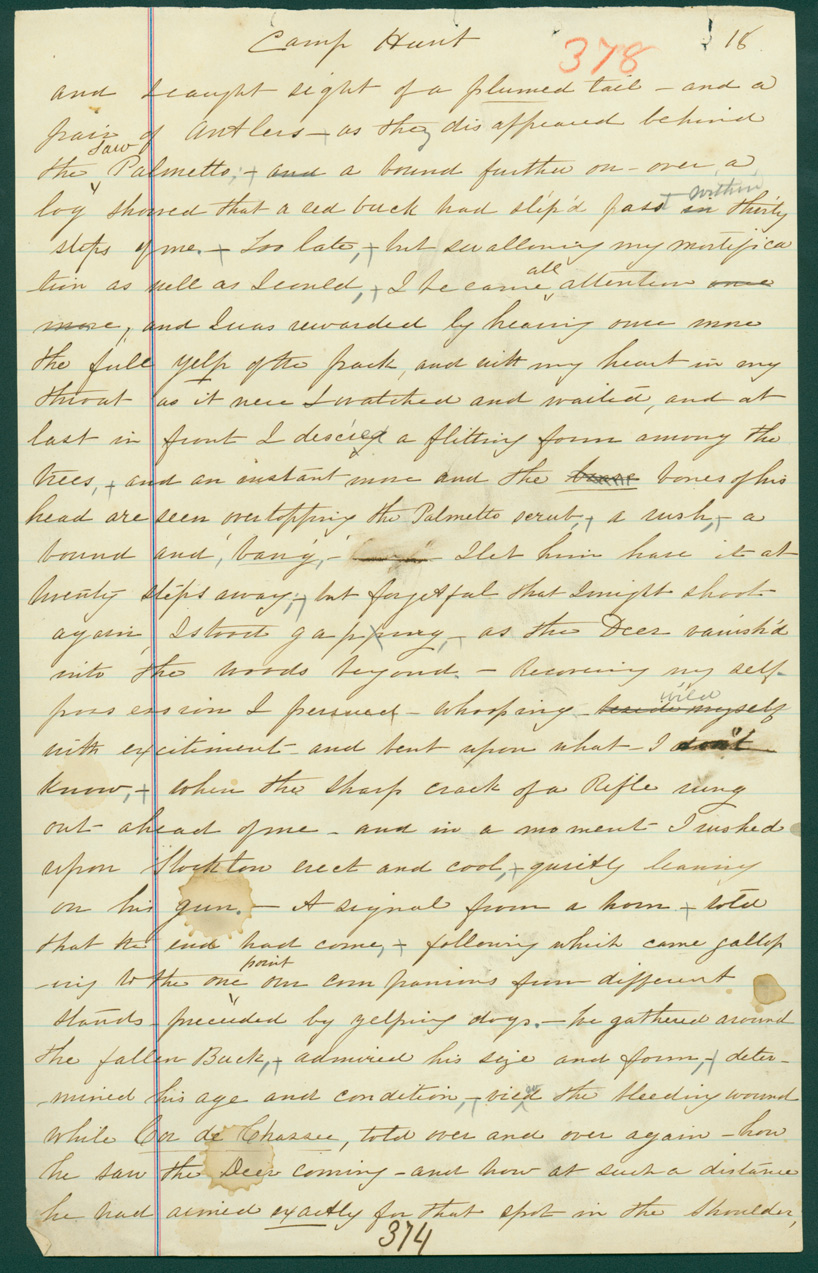 Camp Hunt 378 18
and I caught sight of a plumed tail – and a
pair of Antlers – as they disappeared behind
the Saw Palmetto, – and a bound further on – over a
log showed that a red buck had slip'd past in within thirty
steps of me. – Too late, – but swallowing my mortifica
-tion as well as I could, I became all attention once
more, and I was rewarded by hearing once more
the full yelp of the pack, and with my heart in my
throat as it were I watched and waited, and at
last in front I descied a flitting form among the
trees, and an instant more and the bones of his
head are seen overtopping the Palmetto scrub, a rush, – a
bound and, 'bang', – I let him have it at
twenty steps away, – but forgetful that I might shoot
again, I stood gapping, – as the Deer vanish'd
into the woods beyond. – Recovering my self-
possession I persued – whooping – beside myself wild
with excitiment – and bent upon what – I don't
know, – when the sharp crack of a Rifle rung
out ahead of me – and in a moment I rushed
upon Stockton erect and cool, quietly leaning
on his gun. – A signal from a horn told
that the end had come, following which came gallop
-ing to the one point our companions from different
stands – preceeded by yelping dogs. – we gathered around
the fallen Buck, admired his size and form, – deter-
-mined his age and condition, – vie'd the bleeding wound
while Cor de Chassee, told over and over again – how
he saw the Deer coming – and how at such a distance
he had aimed exactly for that spot in the shoulder,
374